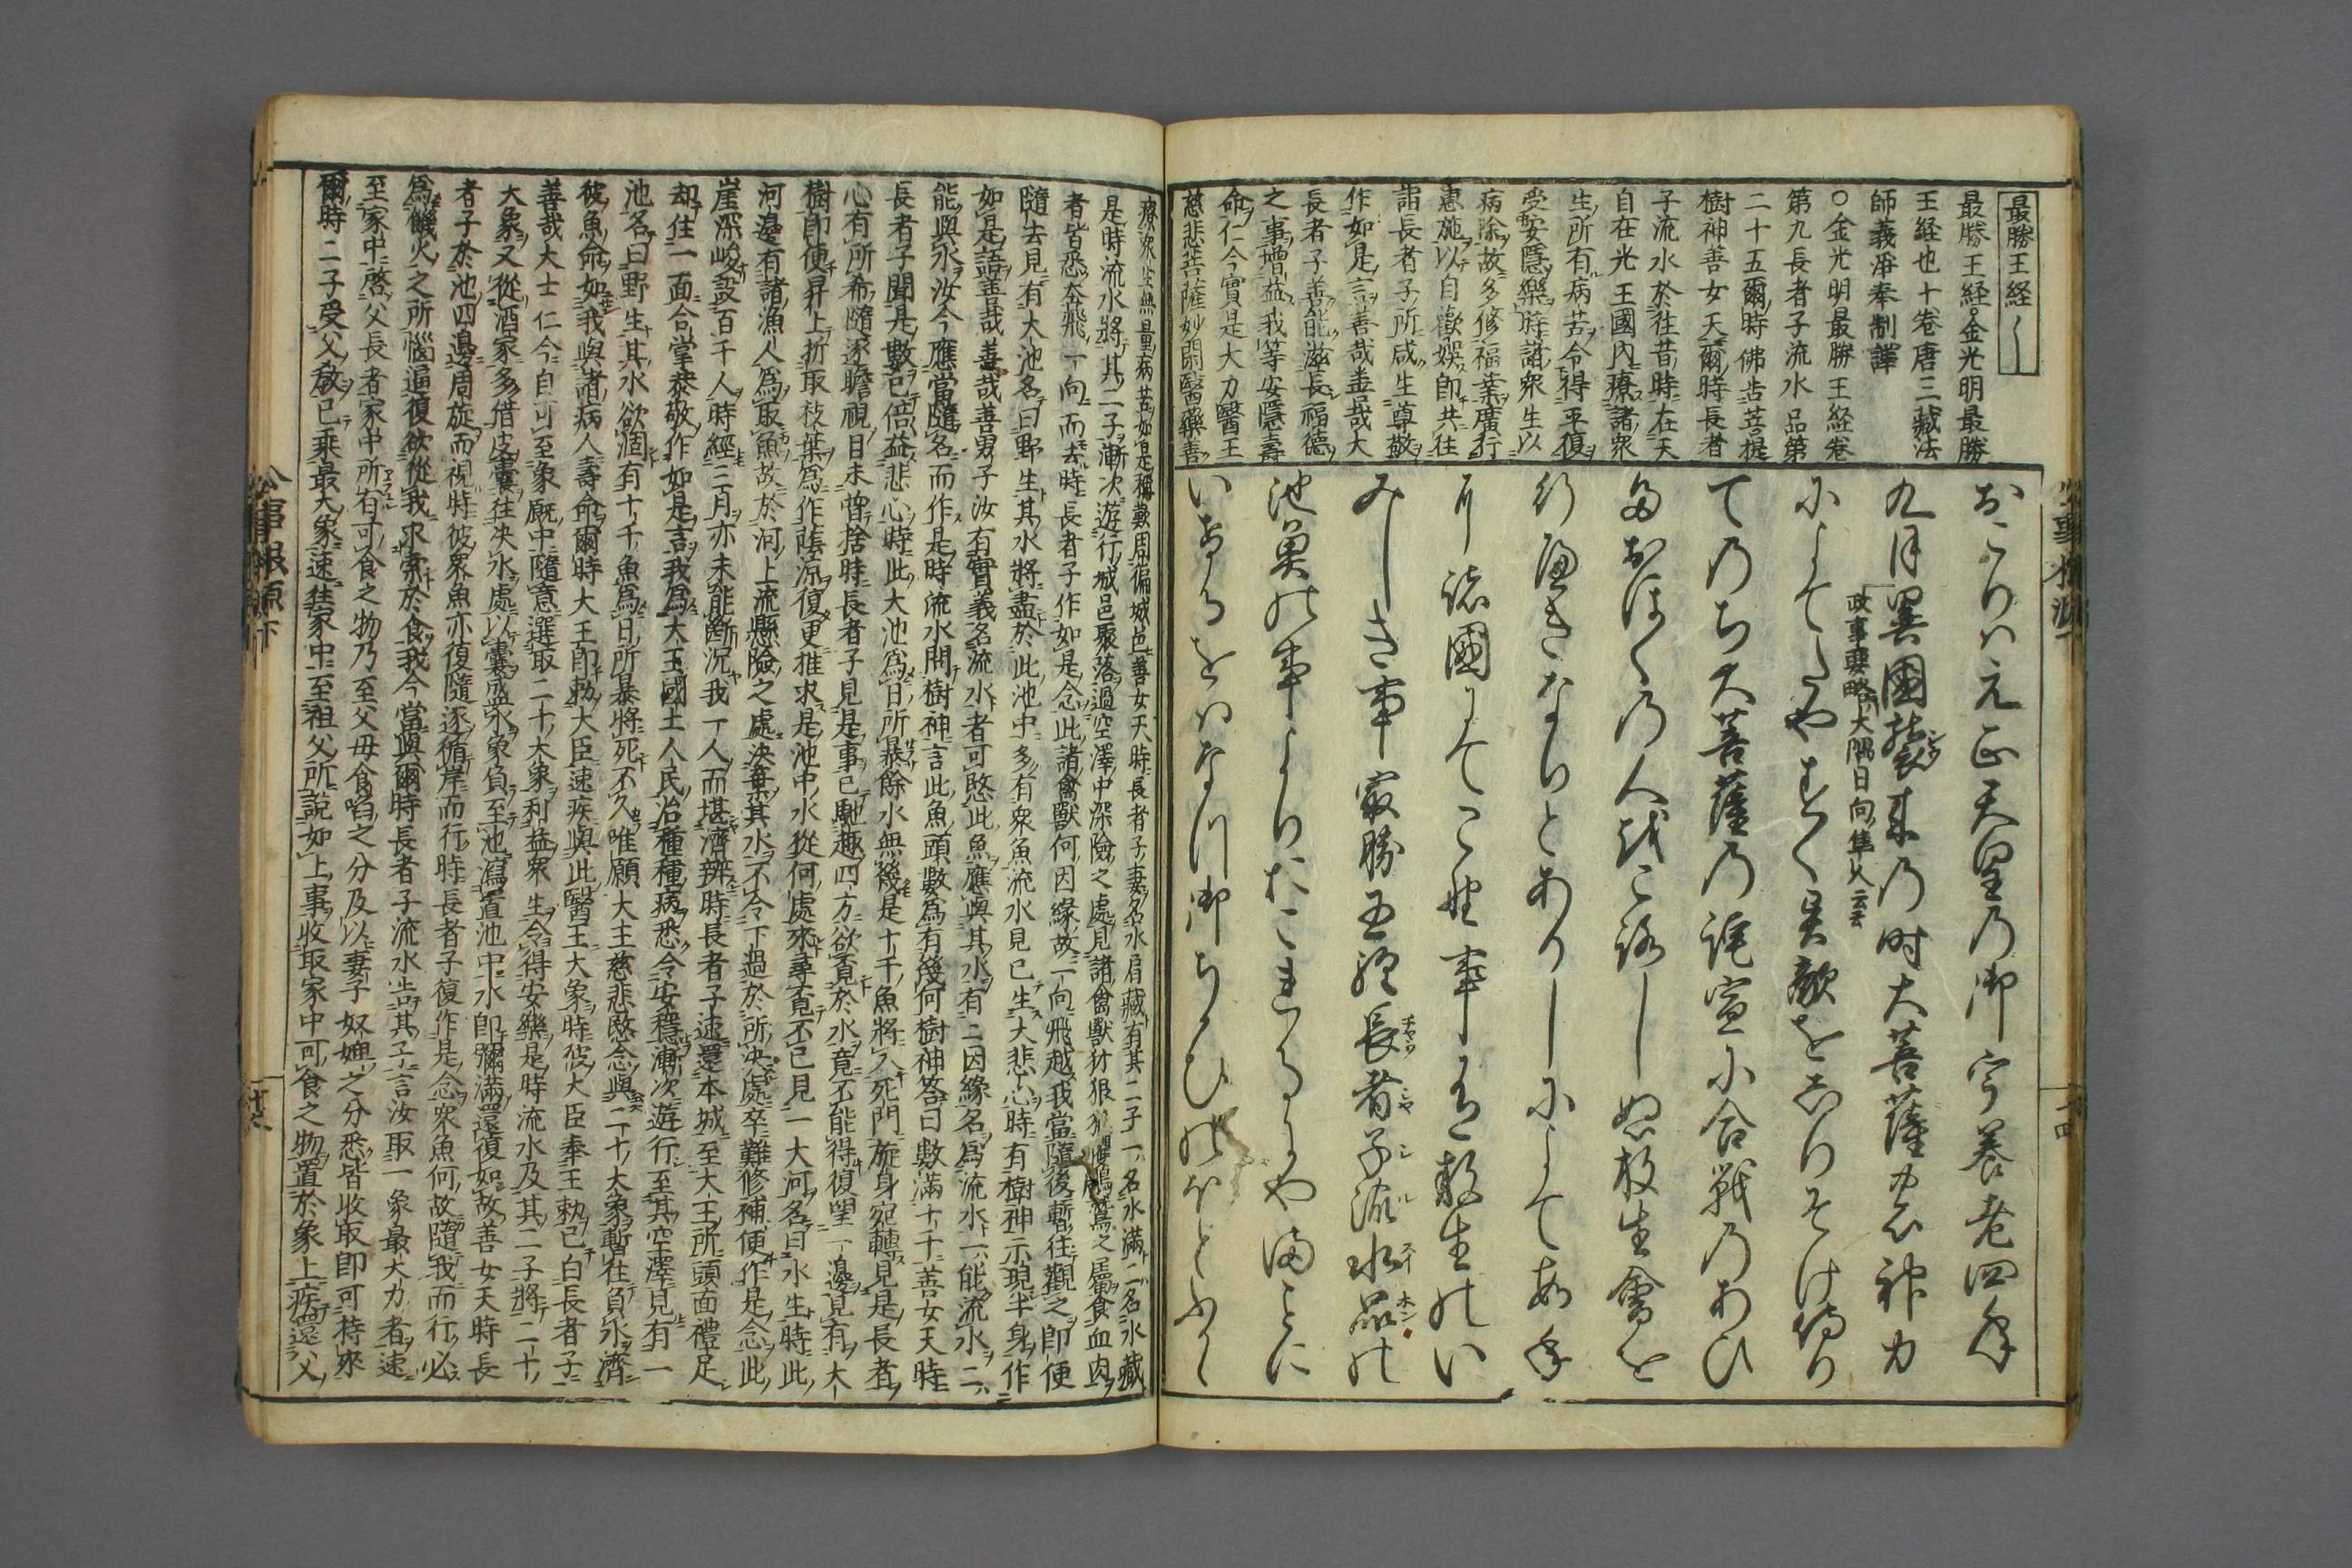 最勝王経
最勝王経金光明最勝
王経也十巻唐三藏法
師義淨奉制譯
○金光明最勝王経巻
第九長者子流水品第
二十五爾時佛告菩提
樹神善女天爾時長者
子流水於往昔時在天
自在光王國内療諸衆
生所有病苦令得平復
受安隱樂時諸衆生以
病除故多修福業廣行
惠施以自歡娯即共往
詣長者子所咸生尊敬
作如是言善哉善哉大
長者子善能滋長福德
之事増益我等安隱壽
命仁今實是大力醫王
慈悲菩薩妙閑醫藥善
おこりハ元正天皇乃御宇養老四年
九月異國襲来乃時大菩薩乃神力
政事要略大隅日向隼人云云
によてたやすく異敵をしりそけ侍り
てのち大菩薩乃詫宣に合戦乃あひ
たおほくの人をころしぬ放生會を
行へきなりとありしによて毎年
に諸國にてこの事あり放生のい
みしき事最勝王経長者子流水品の
池魚の事よりおこれるにやまことに
いけるをはなつ御ちかひのほとふく
療衆生無量病苦如是稱歎周徧城邑善女天時長者子妻名水肩藏有其二子一名水滿二名水藏
是時流水將其二子漸次遊行城邑聚落過空澤中深險之處見諸禽獸犲狼
者皆悉奔飛一向而去時長者子作如是念此諸禽獸何因縁故一向飛越我當隨後暫往觀之即便
隨去見有大池名曰野生其水將盡於此池中多有衆魚流水見已生大悲心時有樹神示現半身作
如是語善哉善哉善男子汝有實義名流水者可愍此魚應與其水有二因縁名爲流水一能流水二
能與水汝今應當隨名而作是時流水問樹神言此魚頭數爲有幾何樹神答曰數滿十千善女天時
長者子聞是數已倍益悲心時此大池爲日所暴餘水無幾是十千魚將入死門旋身宛轉見是長者
心有所希隨逐瞻視目未曾捨時長者子見是事已馳趣四方欲覓於水竟不能得復望一邊見有大
樹即便昇上折取枝葉爲作蔭凉復更推求是池中水從何處來尋覓不已見一大河名曰水生時此
河邊有諸漁人爲取魚故於河上流懸險之處決棄其水不令下過於所決處卒難修補便作是念此
崖深峻設百千人時經三月亦未能斷況我一人而堪濟辦時長者子速還本城至大王所頭面禮足
却住一面合掌恭敬作如是言我爲大王國土人民治種種病悉令安穩漸次遊行至其空澤見有一
池名曰野生其水欲涸有十千魚爲日所暴將死不久唯願大王慈悲愍念與二十大象暫往負水濟
彼魚命如我與諸病人壽命爾時大王即勅大臣速疾與此醫王大象時彼大臣奉王勅已白長者子
善哉大士仁今自可至象厩中隨意選取二十大象利益衆生令得安樂是時流水及其二子將二十
大象又從酒家多借皮囊往決水處以囊盛水象負至池瀉置池中水即彌滿還復如故善女天時長
者子於池四邊周旋而視時彼衆魚亦復隨逐循岸而行時長者子復作是念衆魚何故隨我而行必
爲饑火之所惱逼復欲從我求索於食我今當與爾時長者子流水告其子言汝取一象最大力者速
至家中啓父長者家中所有可食之物乃至父母食噉之分及以妻子奴婢之分悉皆收取即可持來
爾時二子受父敎已乘最大象速往家中至祖父所説如上事收取家中可食之物置於象上疾還父
公事根源下